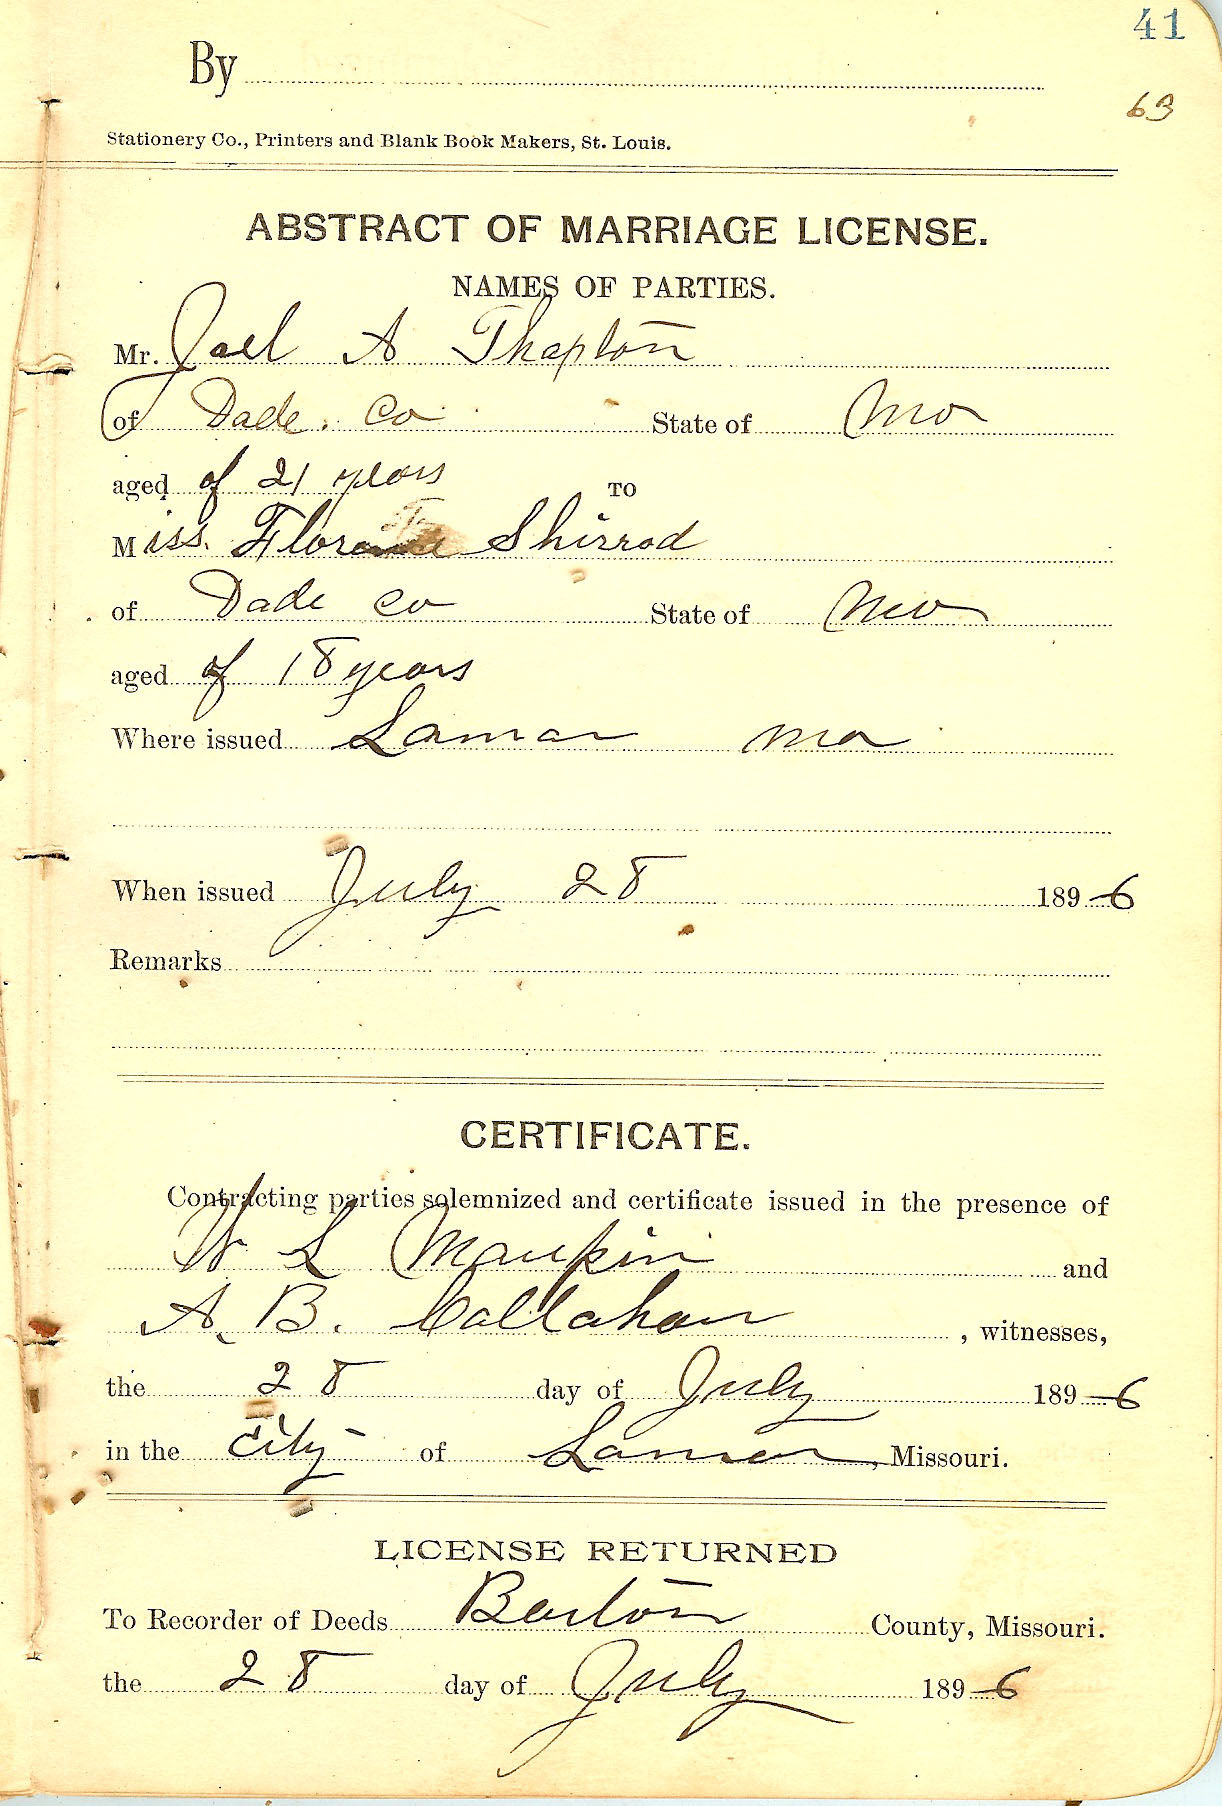 41
By
63
Stationery Co., Printers and Blank Book Makers, St. Louis.
ABSTRACT OF MARRIAGE LICENSE.
NAMES OF PARTIES.
Mr. Joel A Thaplon
of Dade. Co State of Mo
aged of 21 years TO
Miss. Florence Shirrod
of Dade Co State of Mo
aged of 18 years
Where issued Lamar Mo
When issued July 28 1896
Remarks
CERTIFICATE.
Contracting parties solemnized and certificate issued in the presence of
W L Maupin and
A. B. Callahan, witnesses,
the 28 day of July 1896
in the City of Lamar, Missouri.
LICENSE RETURNED
To Recorder of Deeds Barton County, Missouri.
the 28 day of July 1896